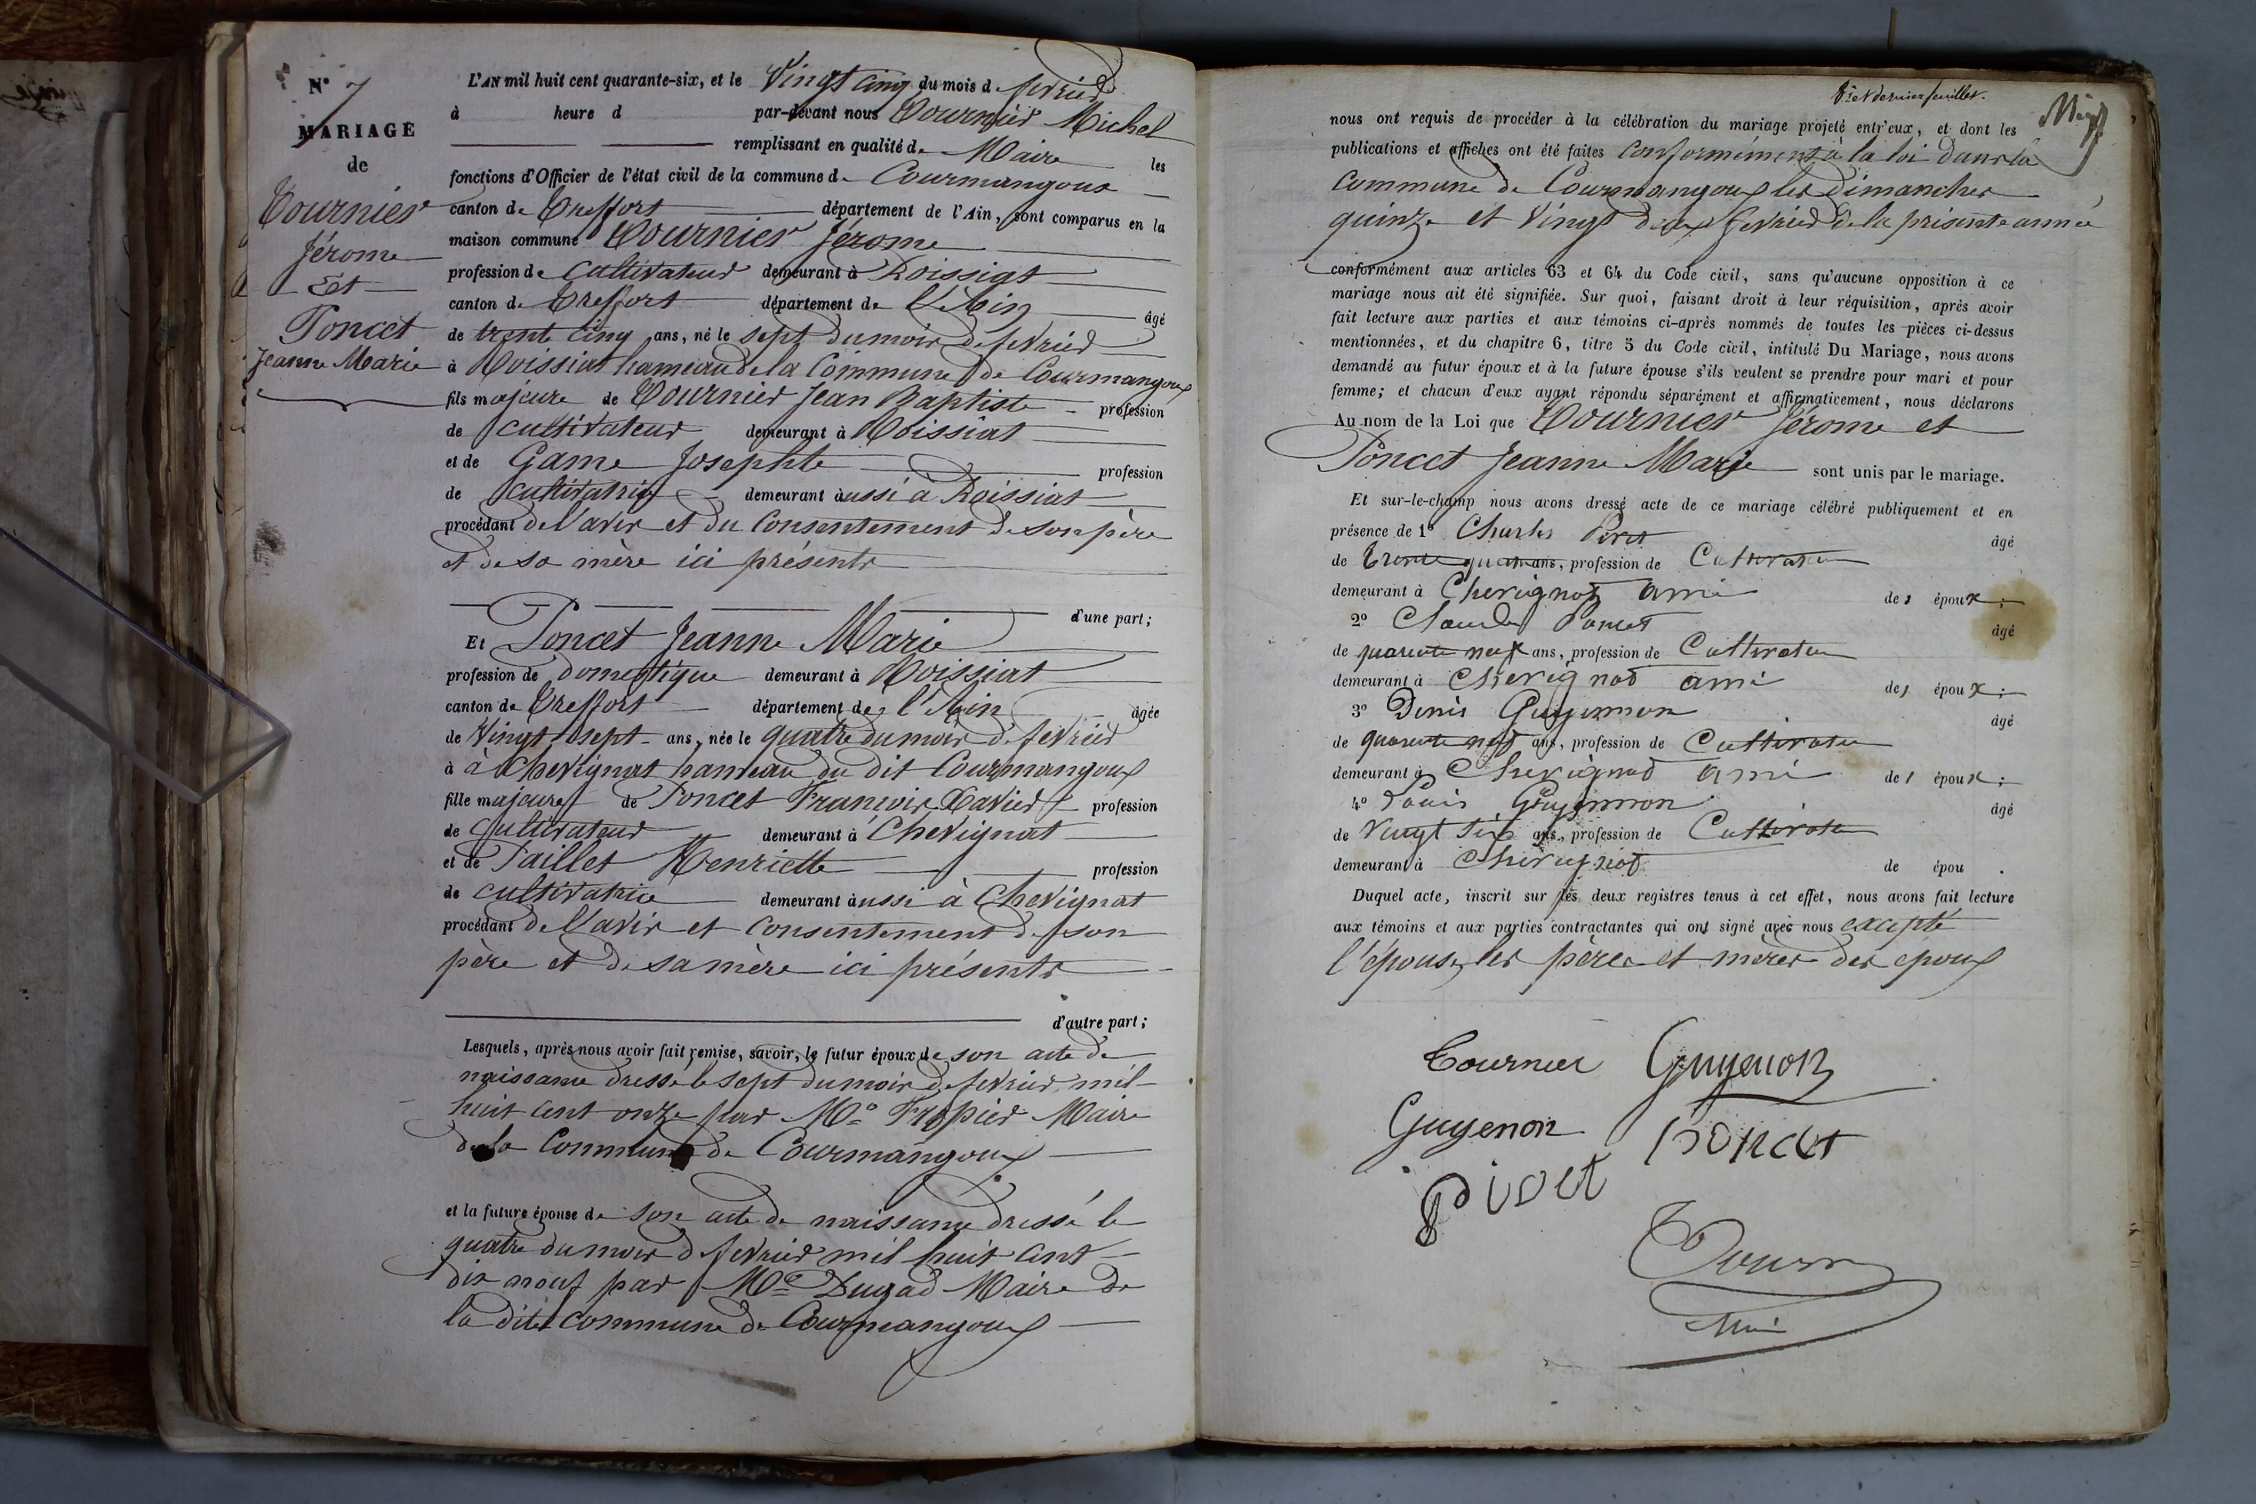 N° 7
MARIAGE
de
Tournier
Jérome
Et
Poncet
Jeanne Marie
L'AN mil huit cent quarante-six, et le Vingt cinq du mois de fevrier
à heure d par-devant nous Tournier Michel
remplissant en qualité de Maire les
fonctions d'Officier de l'état civil de la commune de Courmangoux
canton de Treffort département de l'Ain, sont comparus en la
maison commune Tournier Jérome
profession de Cultivateur demeurant à Roissiat
canton de Treffort département de l'Ain âgé
de trente cinq ans, né le sept du mois de fevrier
à Roissiat hameau de la Commune de Courmangoux
fils majeure de Tournier Jean Baptiste profession
de cultivateur demeurant à Roissiat
et de Game Josephte profession
de cultivatrice demeurant aussi à Roissiat
procédant de l'avis et du consentement de son père
et de sa mère ici présents
d'une part;
Et Poncet Jeanne Marie
profession de domestique demeurant à Roissiat
canton de Treffort département de l'Ain âgée
de Vingt sept ans, née le quatre du mois de fevrier
à à Chevignat hameau du dit Courmangoux
fille majeure de Poncet François Xavier profession
de Cultivateur demeurant à Chevignat
et de Paillet Henriette profession
de cultivatrice demeurant aussi à Chevignat
procédant de l'avis et consentement de son
père et de sa mère ici présents
d'autre part;
Lesquels, après nous avoir fait remise, savoir, le futur époux de son acte de
naissance dressé le sept du mois de fevrier mil
huit cent onze par Mr Tropier Maire
de la Commune de Courmangoux
et la future épouse de son acte de naissance dressé le
quatre du mois de fevrier mil huit cent
dix neuf par Mr Dugad Maire de
la dite commune de Courmangoux
8e et dernier feuillet.
nous ont requis de procéder à la célébration du mariage projeté entr'eux, et dont les
publications et affiches ont été faites conformément à la loi dans la
Commune de Courmangoux les dimanches
quinze et Vingt deux fevrier de la présente année
conformément aux articles 63 et 64 du Code civil, sans qu'aucune opposition à ce
mariage nous ait été signifiée. Sur quoi, faisant droit à leur réquisition, après avoir
fait lecture aux parties et aux témoins ci-après nommés de toutes les pièces ci-dessus
mentionnées, et du chapitre 6, titre 5 du Code civil, intitulé Du Mariage, nous avons
demandé au futur époux et à la future épouse s'ils veulent se prendre pour mari et pour
femme; et chacun d'eux ayant répondu séparément et affirmativement, nous déclarons
Au nom de la Loi que Tournier Jérome et
Poncet Jeanne Marie sont unis par le mariage.
Et sur-le-champ nous avons dressé acte de ce mariage célébré publiquement et en
présence de 1° Charles Pivet âgé
de trente quatre ans, profession de Cultivateur
demeurant à Chevignat ami des époux;
2° Claude Poncet âgé
de quarente neuf ans, profession de Cultivateur
demeurant à Chevignat ami des époux;
3° Denis Guyennon âgé
de quarente neuf ans, profession de Cultivateur
demeurant à Chevignat ami des époux;
4° Louis Guyennon âgé
de Vingt six ans, profession de Cultivateur
demeurant à Chevignat de épou .
Duquel acte, inscrit sur les deux registres tenus à cet effet, nous avons fait lecture
aux témoins et aux parties contractantes qui ont signé avec nous excepté
l'épouse, les pères et mères des époux
Tournier Guyenon
Guyenon Poncet
Pivet
Tournier